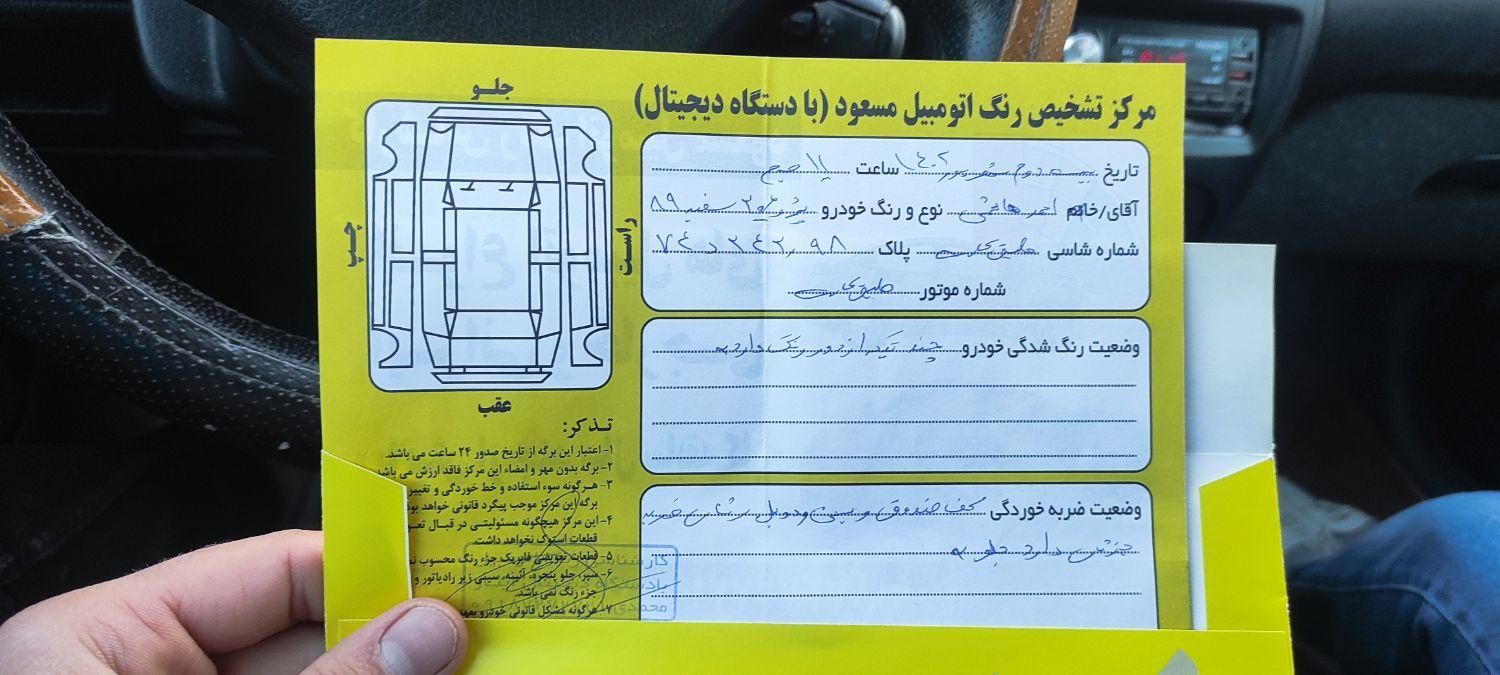 مرکز تشخیص رنگ اتومبیل مسعود (با دستگاه دیجیتال)
تاریخ بیست دوم ۱۴۰۲ ساعت ۱۱ صبح
آقای/خانم احمد هاشمی نوع و رنگ خودرو پژو سفید ۸۹
شماره شاسی پلاک ۹۸
شماره موتور
وضعیت رنگ شدگی خودرو چند تیکه از دور رنگ دارد
وضعیت ضربه خوردگی کف صندوق و سینی و دوبل شاسی ضربه
دارد جلو
جلـو
چپ
راست
عقب
تـذکر:
۱- اعتبار این برگه از تاریخ صدور ۲۴ ساعت می باشد.
۲- برگه بدون مهر و امضاء این مرکز فاقد ارزش می باشد
۳- هرگونه سوء استفاده و خط خوردگی و تغییر
برگه این مرکز موجب پیگرد قانونی خواهد بود
۴- این مرکز هیچگونه مسئولیتی در قبال
قطعات استوک نخواهد داشت.
۵- قطعات تعویضی فابریک جزء رنگ محسوب
۶- سپر، جلو پنجره، آئینه، سینی زیر رادیاتور و
جزء رنگ نمی باشد.
۷- هرگونه مشکل قانونی خودرو